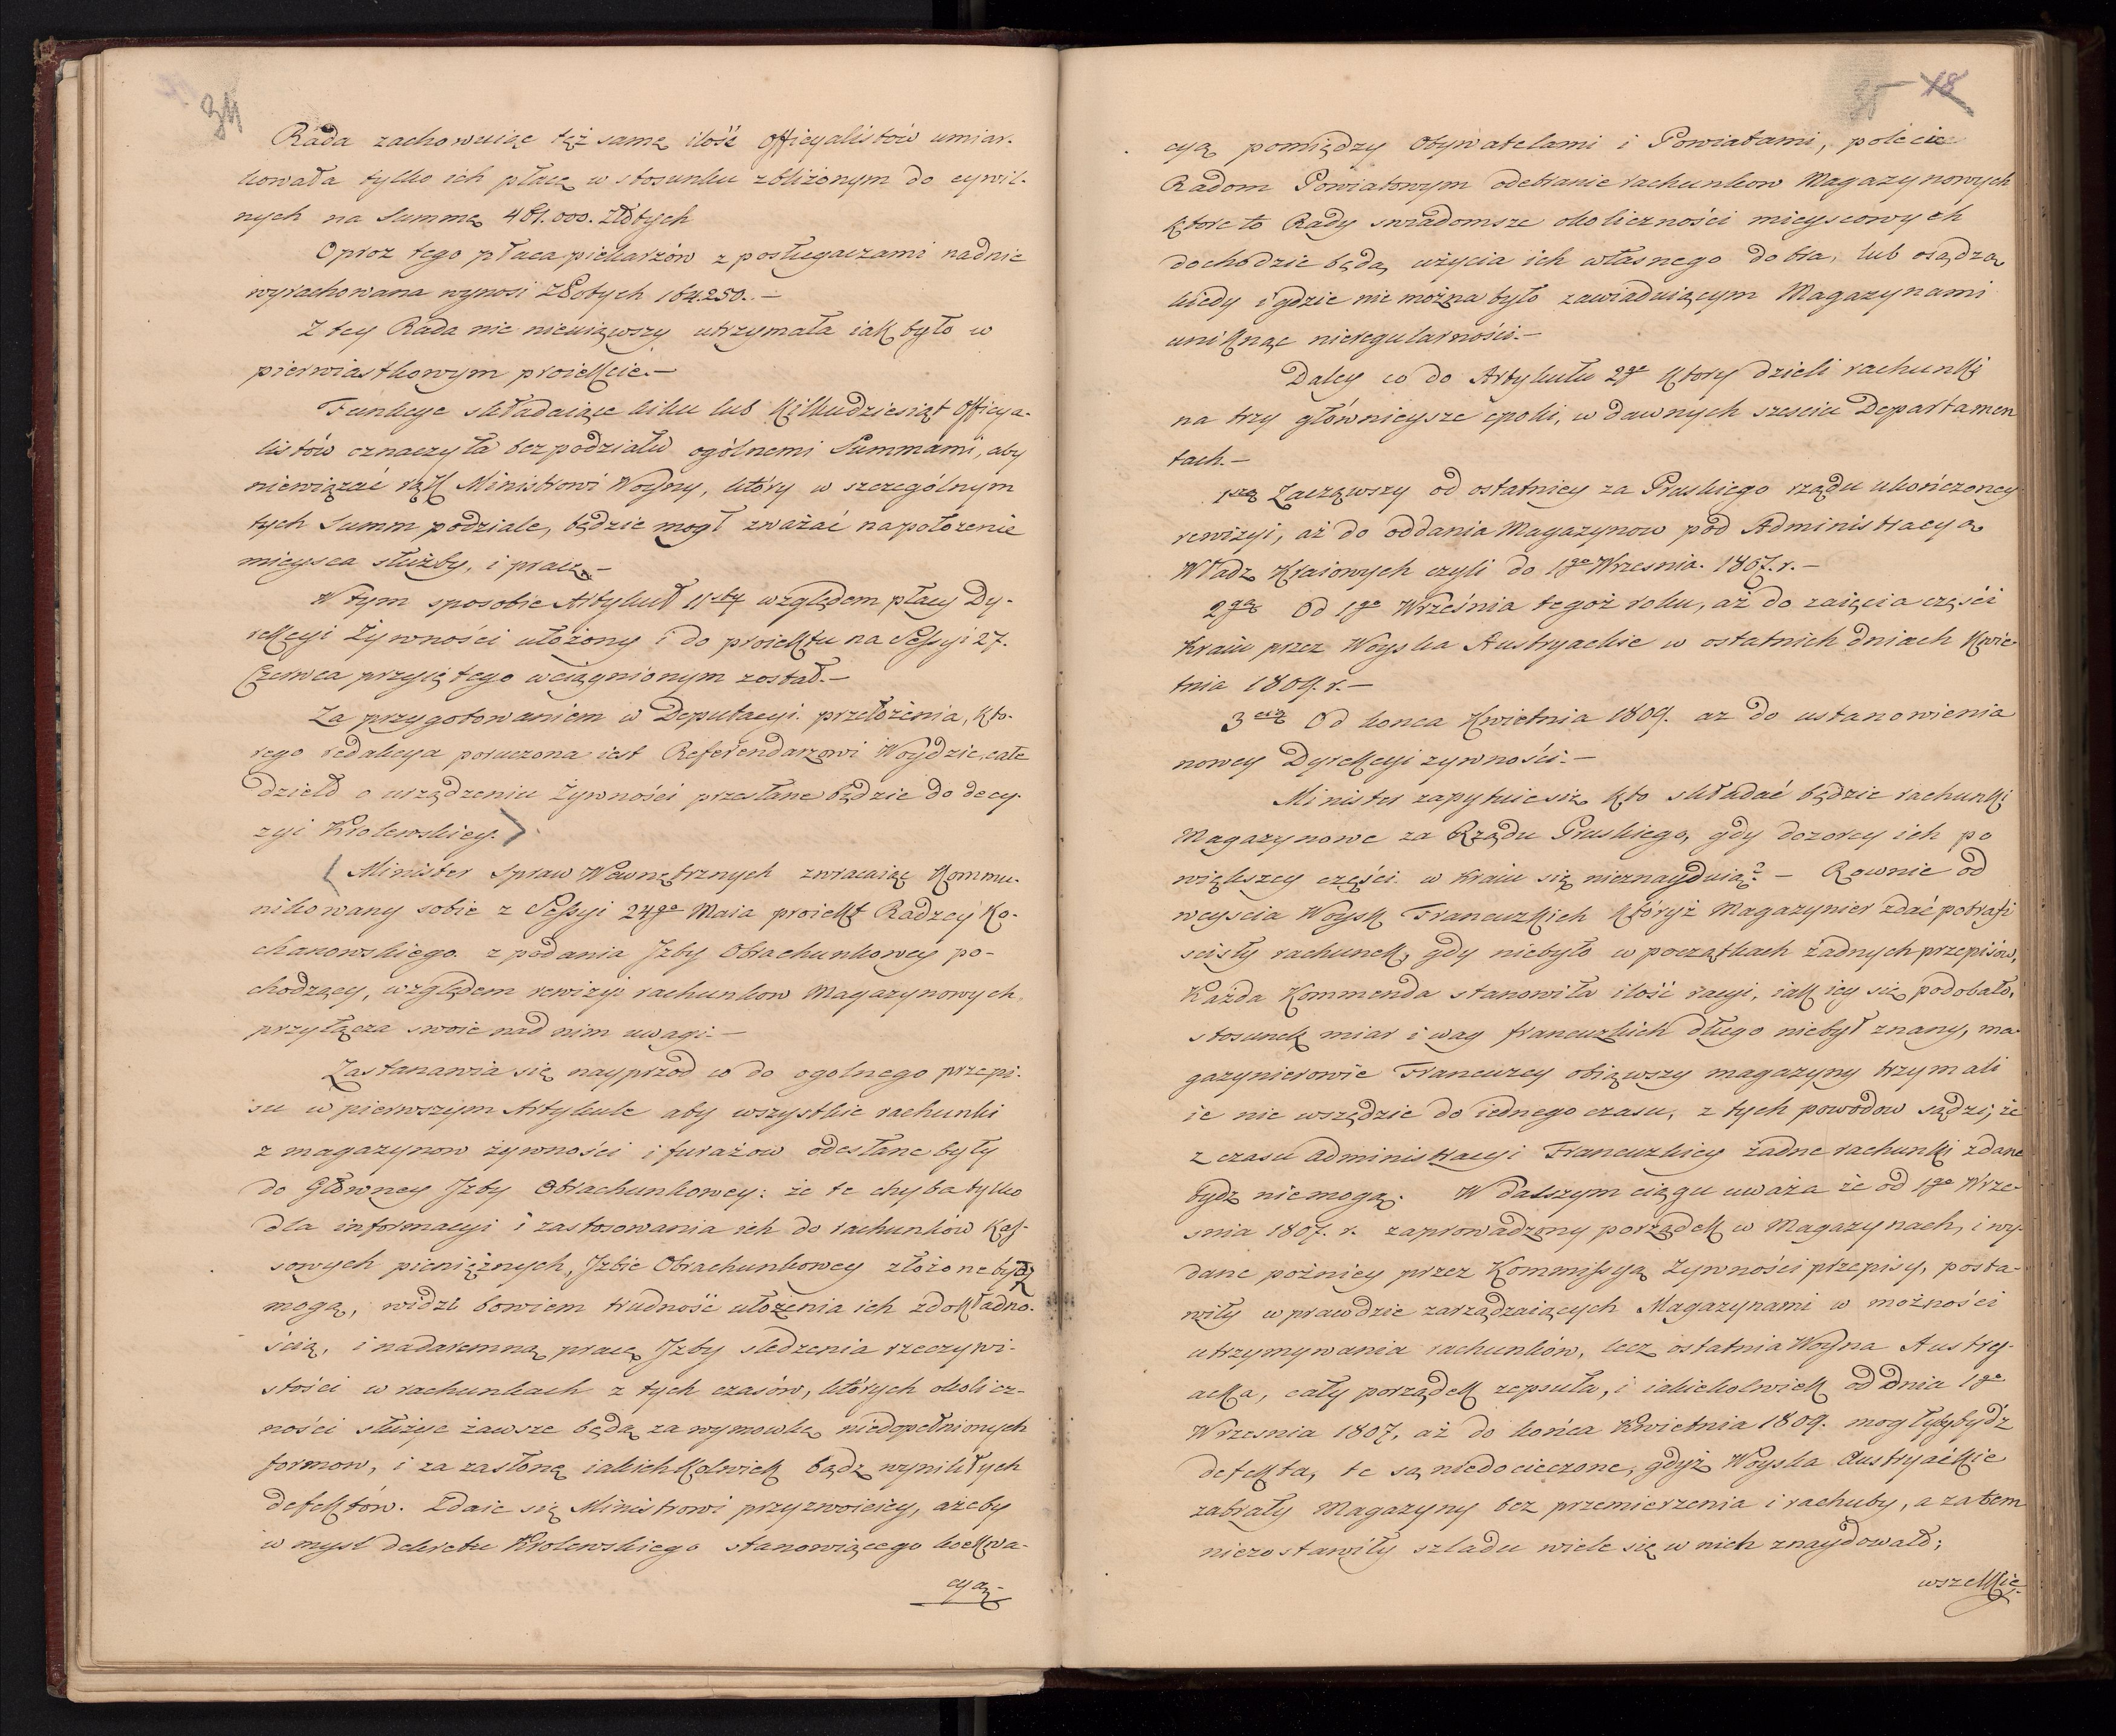 34
Rada zachowuiąc tęż samę ilość Officyalistów umiar-
kowała tylko ich płacę w stosunku zbliżonym do cywil-
nych na Summę 461.000. Złotych
Oproz tego płaca piekarzów z posługaczami nadnie
wyrachowana wynosi Złotych 164.250.–
Z tey Rada nic nieuiąwszy utrzymała iak było w
pierwiastkowym proiekcie.–
Funkcye składaiące kilku lub kilkudziesiąt Officya-
listów oznaczyła bez podziału ogólnemi Summami, aby
niewiązać rąk Ministrowi Woyny, który w szczególnym
tych Summ podziale, będzie mogł zważać na położenie
mieysca służby, i pracę.–
W tym sposobie Artykuł 11sty względem płacy Dy-
rekcyi Żywności ułożony i do proiektu na Sessyi 27.
Czerwca przyiętego wciągnionym został.–
Za przygotowaniem w Deputacyi przełożenia, kto-
rego redakcya poruczona iest Referendarzowi Woydzie, całe
dzieło o urządzeniu Żywności przesłane będzie do decy-
zyi Krolewskiey.
Minister Spraw Wewnętrznych zwracaiąc Kommu-
nikowany sobie z Sessyi 24go Maia proiekt Radzcy Ko-
chanowskiego z podania Jzby Obrachunkowey po-
chodzący, względem rewizyi rachunkow Magazynowych
przyłącza swoie nad nim uwagi.–
Zastanawia się nayprzod co do ogolnego przepi-
su w pierwszym Artykule aby wszystkie rachunki
z magazynow żywności i furażow odesłane były
do Głowney Jzby Obrachunkowey: że te chyba tylko
dla informacyi i zastosowania ich do rachunków Kas-
sowych pieniężnych, Jzbie Obrachunkowey złożone bydź
mogą, widzi bowiem trudność ułożenia ich z dokładno-
ścią, i nadaremną pracę Jzby sledzenia rzeczywi-
stości w rachunkach z tych czasów, których okolicz-
ności służyc zawsze będą za wymowkę niedopełnionych
formow, i za zasłonę iakichkolwiek bądz wynikłych
defektów. Zdaie się Ministrowi przyzwoiciey, ażeby
w mysl dekretu Krolewskiego stanowiącego hoekwa-
cyą–
35 18
cyą pomiędzy Obywatelami i Powiatami, polecic
Radom Powiatowym odebranie rachunkow Magazynowych
ktore to Rady swiadomsze okoliczności mieyscowych
dochodzic będą użycia ich własnego dobra, lub osądzą
kiedy i gdzie nie można było zawiaduiącym Magazynami
uniknąc nieregularności.–
Daley co do Artykułu 2go ktory dzieli rachunki
na trzy główneysze epoki, w dawnych szesciu Departamen
tach.–
1szą Zacząwszy od ostatniey za Pruskiego rządu ukończoney
rewizyi, aż do oddania Magazynow pod Administracyą
Władz Kraiowych czyli do 1go Wrzesnia. 1807. r.–
2gą Od 1go Września tegoż roku, aż do zaięcia części
Kraiu przez Woyska Austryackie w ostatnich dniach Kwie-
tnia 1809. r.–
3cią Od konca Kwietnia 1809. az do ustanowienia
nowey Dyrekcyi zywności.–
Minister zapytuie się kto składać będzie rachunki
Magazynowe za Rządu Pruskiego, gdy dozorcy ich po
większey części w Kraiu się nieznayduią? – Rownie od
weyscia Woysk Francuzkich któryż Magazynier zdać potrafi
scisły rachunek, gdy niebyło w początkach żadnych przepisów,
Każda Kommenda stanowiła ilość racyi, iak iey się podobało,
stosunek miar i wag francuzkich długo niebył znany, ma-
gazynierowie Francuzcy obiąwszy magazyny trzymali
ie nie wszędzie do iednego czasu, z tych powodow sądzi, że
z czasu Administracyi Francuzkiey żadne rachunki zdane
bydz niemogą. W dalszym ciągu uważa że od 1go Wrze-
snia 1807. r. zaprowadzony porządek w Magazynach, i wy-
dane poźniey przez Kommissyą Żywności przepisy, posta-
wiły wprawdzie zarządzaiących Magazynami w możności
utrzymywania rachunków, lecz ostatnia Woyna Austry-
acka, cały porządek zepsuła, i iakiekolwiek od dnia 1go
Wrzesnia 1807. aż do końca Kwietnia 1809. mogłyby bydź
defekta, te są niedocieczone, gdyż Woyska Austryackie
zabrały Magazyny bez przemierzenia i rachuby, a zatem
niezostawiły szladu wiele się w nich znaydowało;
wszelkie